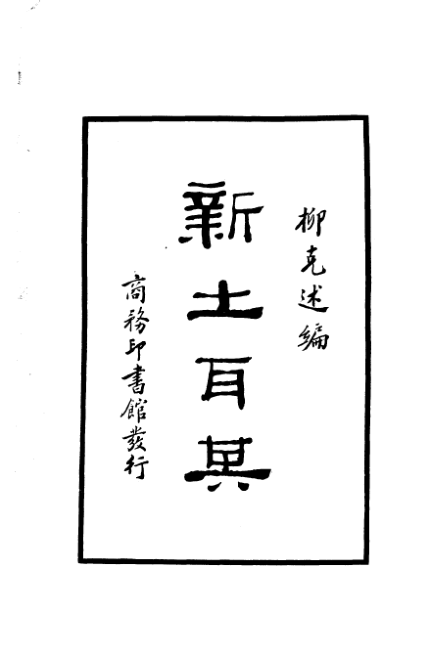 柳克述編
新土耳其
商務印書館發行